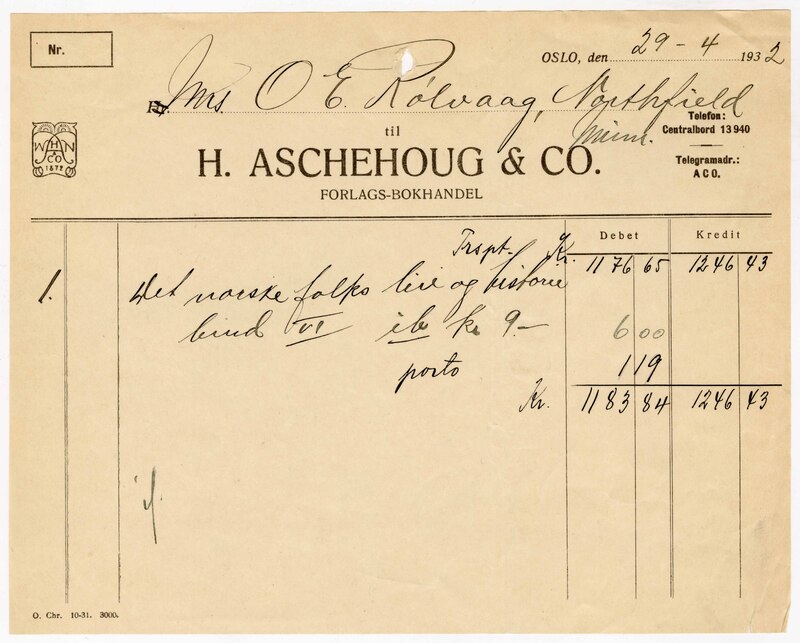 Nr.
OSLO, den 29 - 4 1932
Mrs O E. Rölvaag, Northfield
Minn.
til
Telefon:
Centralbord 13 940
H. ASCHEHOUG & CO.
Telegramadr.:
ACO.
FORLAGS-BOKHANDEL
WHN
A
CO
1872
Debet Kredit
Trspt. Kr. 1176 65 1246 43
1. Det norske folks liv og historie
bind VI ib kr 9- 6 00
porto 1 19
Kr. 1183 84 1246 43
O. Chr. 10-31. 3000.